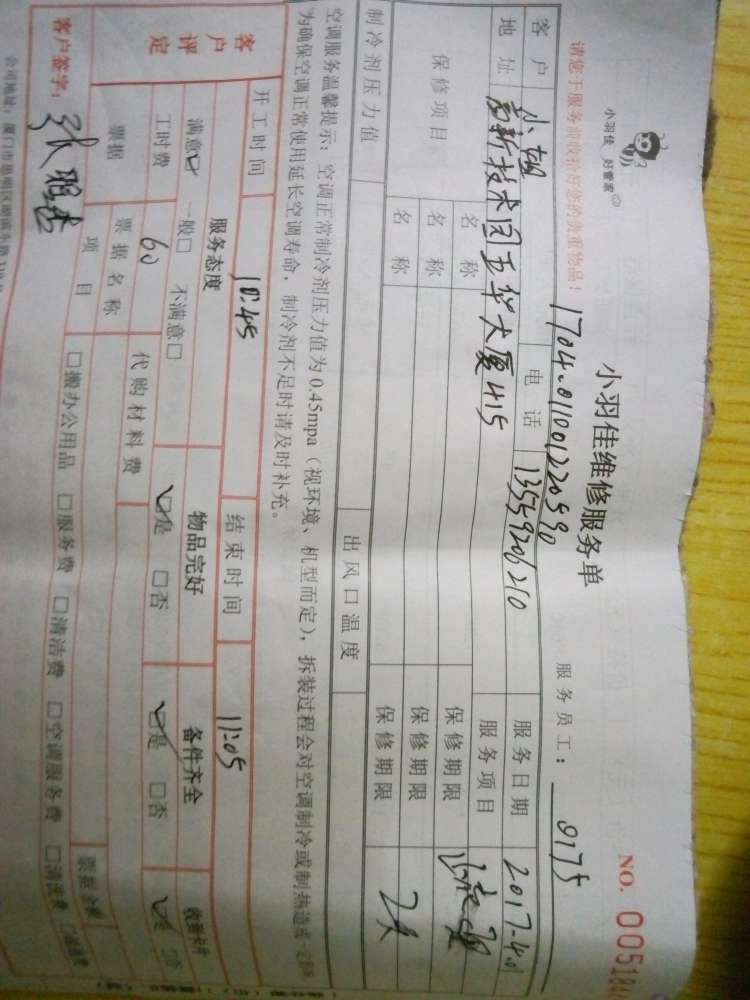 小羽佳 好管家
小羽佳维修服务单
NO. 005184
请您于服务前收拾好您的贵重物品！
1704011001220590
服务员工： 0175
客户 小姐 电话 13559206210 服务日期 2017-4.1
地址 高新技术园五华大厦415 服务项目
保修项目 名称 保修期限
名称 保修期限
名称 保修期限
制冷剂压力值 出风口温度
空调服务温馨提示：空调正常制冷剂压力值为0.45mpa（视环境、机型而定），拆装过程会对空调制冷或制热造成一定影响
为确保空调正常使用延长空调寿命，制冷剂不足时请及时补充。
开工时间 10:45 结束时间 11:05
客户评定 服务态度 物品完好 备件齐全 收到卡片
满意☑ 一般□ 不满意□ ☑是 □否 ☑是 □否
工时费 60 代购材料费
票据 票据名称 票据金额
项目 □搬办公用品 □服务费 □清洁费 □空调服务费 □清洗费
客户签字：